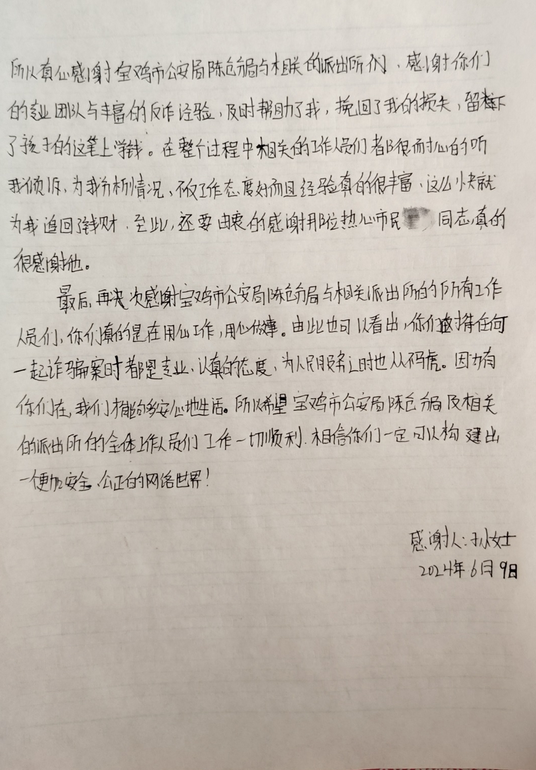 所以真心感谢宝鸡市公安局陈仓分局与相关的派出所们、感谢你们
的专业团队与丰富的反诈经验,及时帮助了我,挽回了我的损失,留下
了孩子的这笔上学钱。在整个过程中相关的工作人员们都很耐心的听
我倾诉,为我分析情况,不仅工作态度好而且经验真的很丰富,这么快就
为我追回了钱财,至此,还要由衷的感谢那位热心市民 同志,真的
很感谢他。
最后,再次感谢宝鸡市公安局陈仓分局与相关派出所的所有工作
人员们,你们真的是在用心工作,用心做事。由此也可以看出,你们对待任何
一起诈骗案时都是专业、认真的态度,为人民服务让时也从不马虎。因为有
你们在,我们才能够安心地生活。所以希望宝鸡市公安局陈仓分局及相关
的派出所的全体工作人员们工作一切顺利,相信你们一定可以构建出
一更加安全、公正的网络世界!
感谢人:孙女士
2024年6月9日